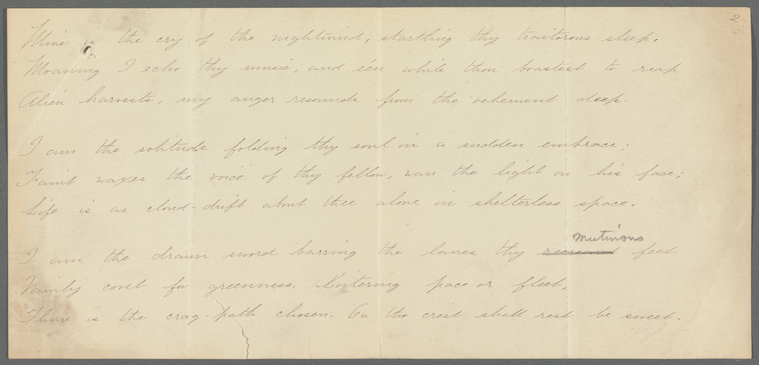 2
Mine is the cry of the night wind, startling thy traitorous sleep,
Moaning I echo thy music, and e'en while thou boastest to reap
Alien harvests, my anger resounds from the vehement deep.
I am the solitude folding thy soul in a sudden embrace;
Faint waxes the voice of thy fellow, wan the light on his face;
Life is as cloud-drift about thee alone in shelterless space.
mutinous
I am the drawn sword barring the lanes thy recreant feet
Vainly covet for greenness. Loitering pace or fleet,
Thine is the crag-path chosen. On the crest shall rest be sweet.